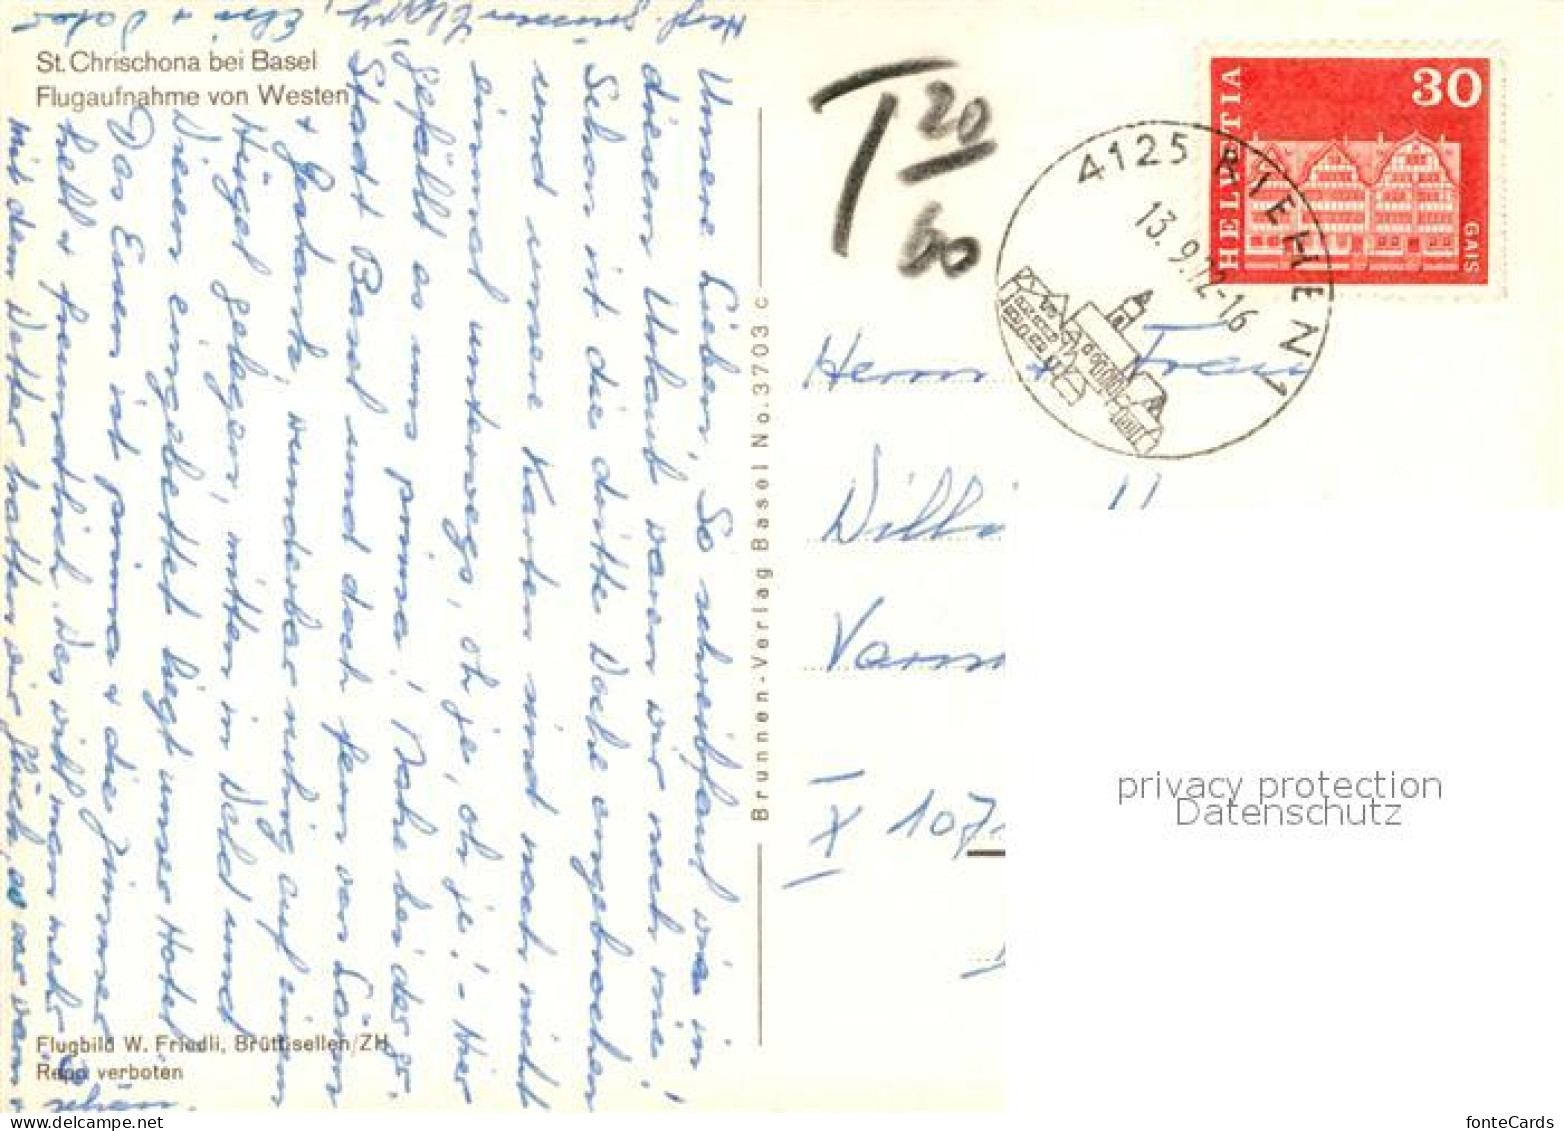 St. Chrischona bei Basel
Flugaufnahme von Westen
Unsere Lieben, So schreibfaul wie in
diesem Urlaub waren wir noch nie!
Schon ist die dritte Woche angebrochen
und unsere Karten sind noch nicht
einmal unterwegs, oh je, oh je! - Hier
gefällt es uns prima! Nahe bei der gr.
Stadt Basel und doch fern von Lärm
+ Gestank, wunderbar ruhig auf einem
Hügel gelegen, mitten in Wald und
Wiesen eingebettet liegt unser Hotel.
Das Essen ist prima + die Zimmer
hell + freundlich. Was will man mehr?
mit dem Wetter hatten wir Glück, es war warm +
schön.
Herzl. Grüsse Elsi +
Flugbild W. Friedli, Brüttisellen/ZH
Repr. verboten
Brunnen-Verlag Basel No. 3703 c
T 20
60
HELVETIA
30
GAIS
4125 RIEHEN 1
13.9.72-16
Herrn + Frau
Willi
X 107
privacy protection
Datenschutz
delcampe.net
fonteCards